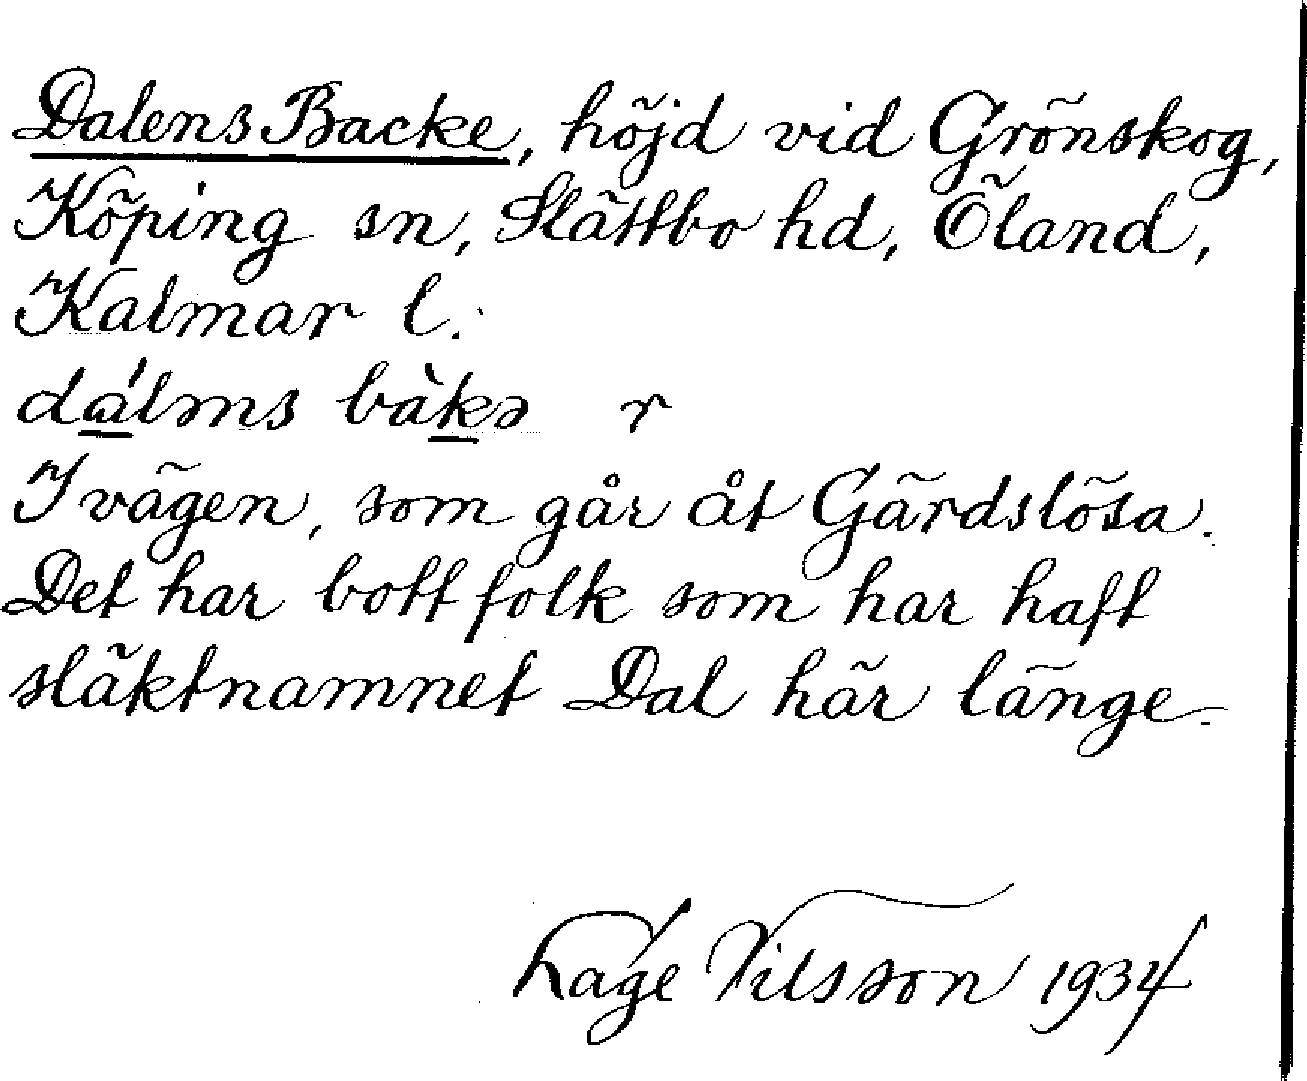 Dalens Backe, höjd vid Grönskog,
Köping sn, Slättbo hd, Öland,
Kalmar l.
dálms bàkə r
I vägen, som går åt Gärdslösa.
Det har bott folk som har haft
släktnamnet Dal här länge.
Lage Nilsson 1934